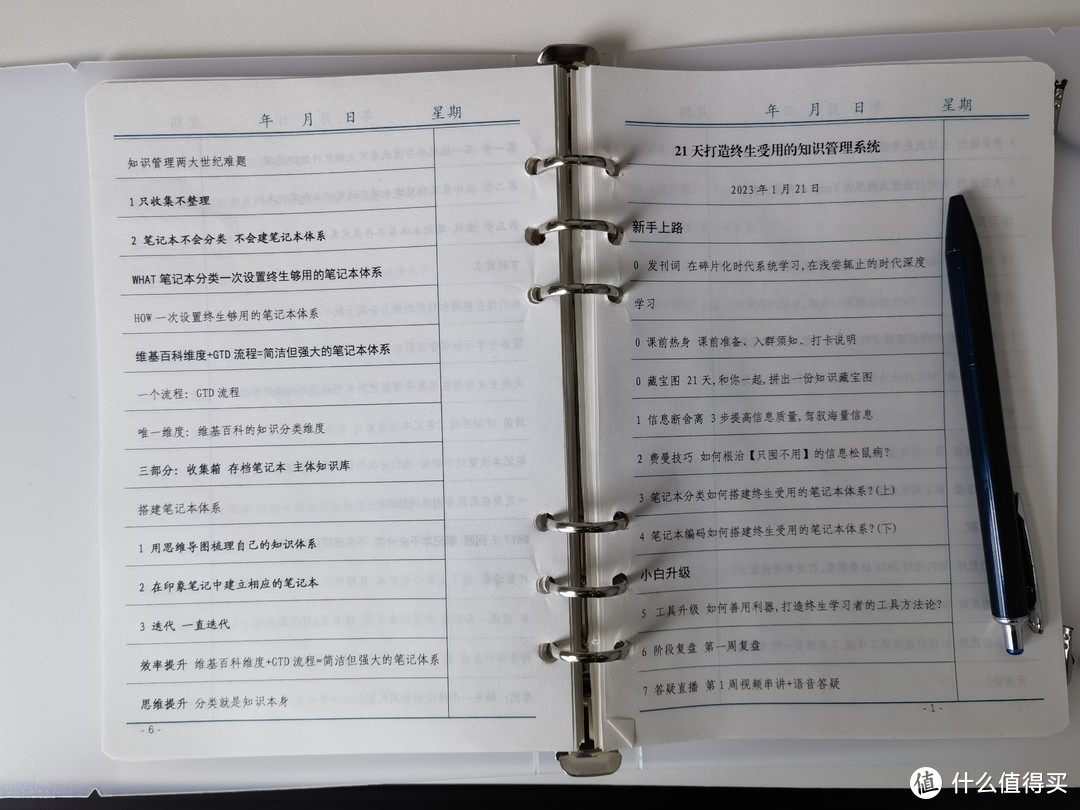 年 月 日 星期
知识管理两大世纪难题
1 只收集不整理
2 笔记本不会分类 不会建笔记本体系
WHAT 笔记本分类一次设置终生够用的笔记本体系
HOW 一次设置终生够用的笔记本体系
维基百科维度+GTD 流程=简洁但强大的笔记本体系
一个流程: GTD 流程
唯一维度: 维基百科的知识分类维度
三部分: 收集箱 存档笔记本 主体知识库
搭建笔记本体系
1 用思维导图梳理自己的知识体系
2 在印象笔记中建立相应的笔记本
3 迭代 一直迭代
效率提升 维基百科维度+GTD 流程=简洁但强大的笔记本体系
思维提升 分类就是知识本身
- 6 -
年 月 日 星期
21 天打造终生受用的知识管理系统
2023 年 1 月 21 日
新手上路
0 发刊词 在碎片化时代系统学习,在浅尝辄止的时代深度
学习
0 课前热身 课前准备、入群须知、打卡说明
0 藏宝图 21 天,和你一起,拼出一份知识藏宝图
1 信息断舍离 3 步提高信息质量,驾驭海量信息
2 费曼技巧 如何根治【只囤不用】的信息松鼠病?
3 笔记本分类如何搭建终生受用的笔记本体系?(上)
4 笔记本编码如何搭建终生受用的笔记本体系?(下)
小白升级
5 工具升级 如何善用利器,打造终生学习者的工具方法论?
6 阶段复盘 第一周复盘
7 答疑直播 第 1 周视频串讲+语音答疑
- 1 -
值 什么值得买